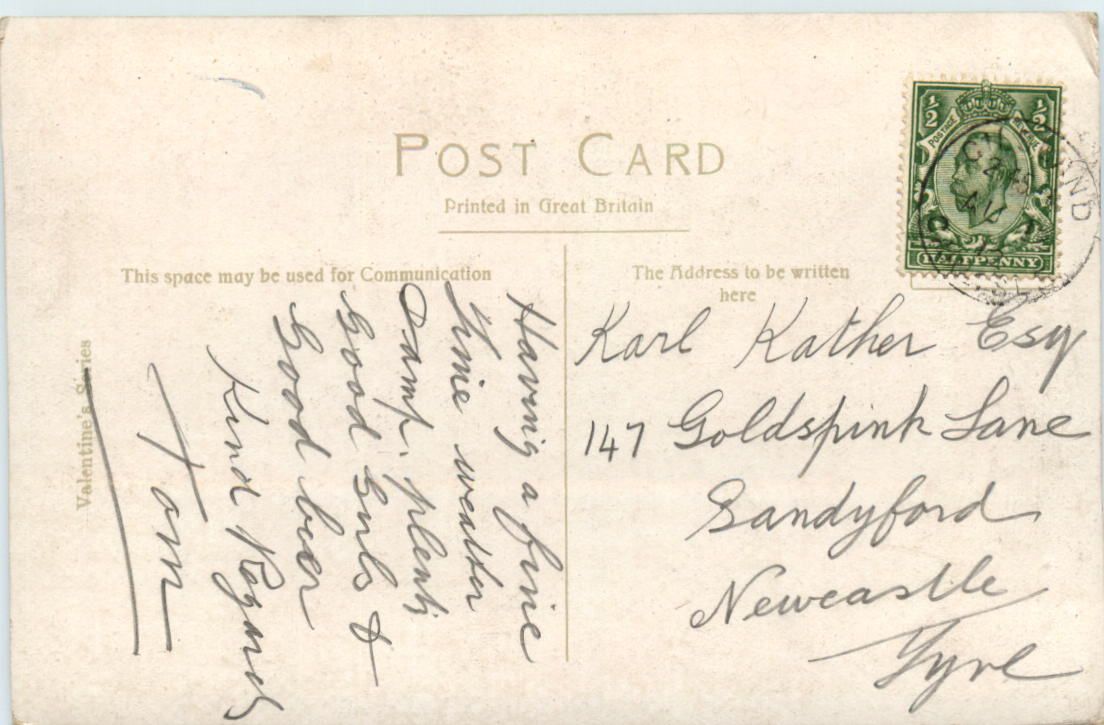 POST CARD
Printed in Great Britain
This space may be used for Communication
The Address to be written
here
½ ½
POSTAGE
HALFPENNY
Having a fine
time weather
Damp. plenty
Good Girls &
Good beer
Kind Regards
Tom
Karl Kather Esq
147 Goldspink Lane
Sandyford
Newcastle
Tyne
Valentine's Series